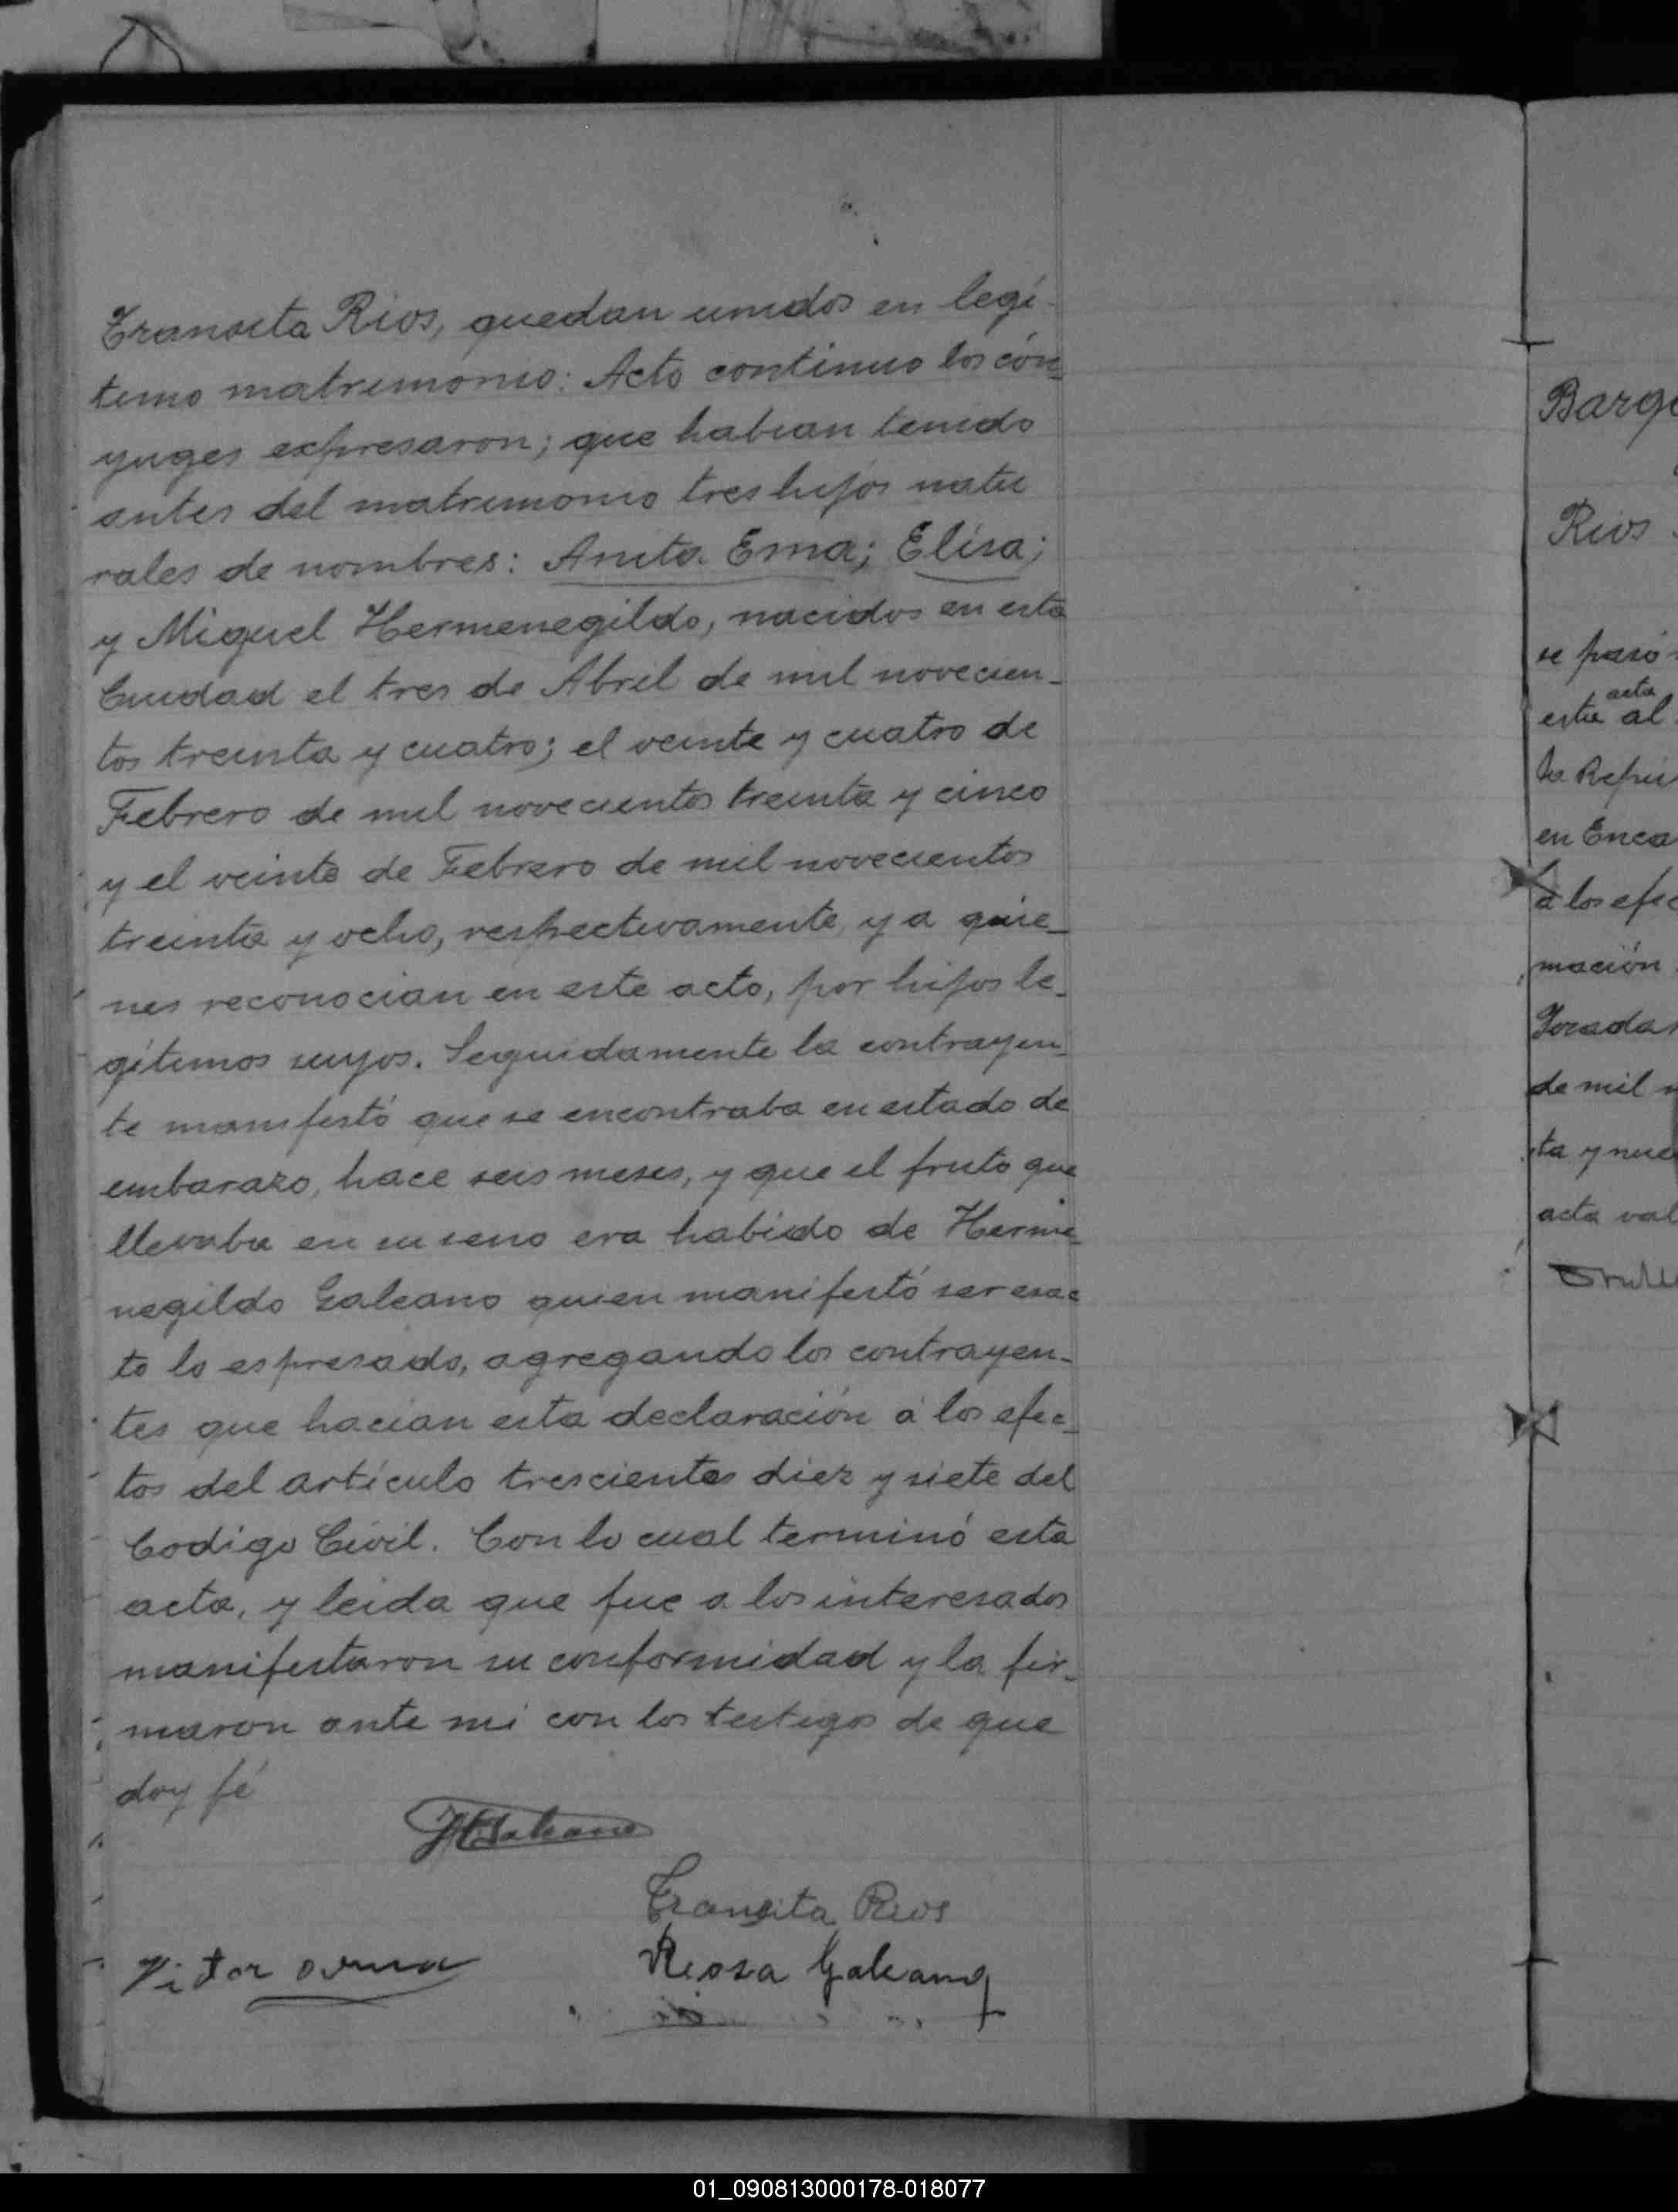 Transita Rios, quedan unidos en legi-
timo matrimonio: Acto continuo los cón_
yuges expresaron; que habian tenido
antes del matrimonio tres hijos natu
rales de nombres: Anita Ema; Elisa;
y Miguel Hermenegildo, nacidos en esta
Ciudad el tres de Abril de mil novecien_
tos treinta y cuatro; el veinte y cuatro de
Febrero de mil novecientos treinta y cinco
y el veinte de Febrero de mil novecientos
treinta y ocho, respectivamente, y a quie_
nes reconocian en este acto, por hijos le_
gitimos suyos. Seguidamente la contrayen_
te manifestó que se encontraba en estado de
embarazo, hace seis meses, y que el fruto que
llevaba en su seno era habido de Herme_
negildo Galeano quien manifestó ser exac
to lo espresado, agregando los contrayen_
tes que hacian esta declaración á los efec_
tos del artículo trescientos diez y siete del
Codigo Civil. Con lo cual terminó esta
acta, y leida que fue a los interesados
manifestaron su conformidad y la fir_
maron ante mi con los testigos de que
doy fé
HGaleano
Transita Rios
Victor
Rossa Galeano
Barge
Rios
se pasó
acta
este al
la Repú
en Enca
a los efec
mación
de mil n
ta y nue
acta val
01_090813000178-018077